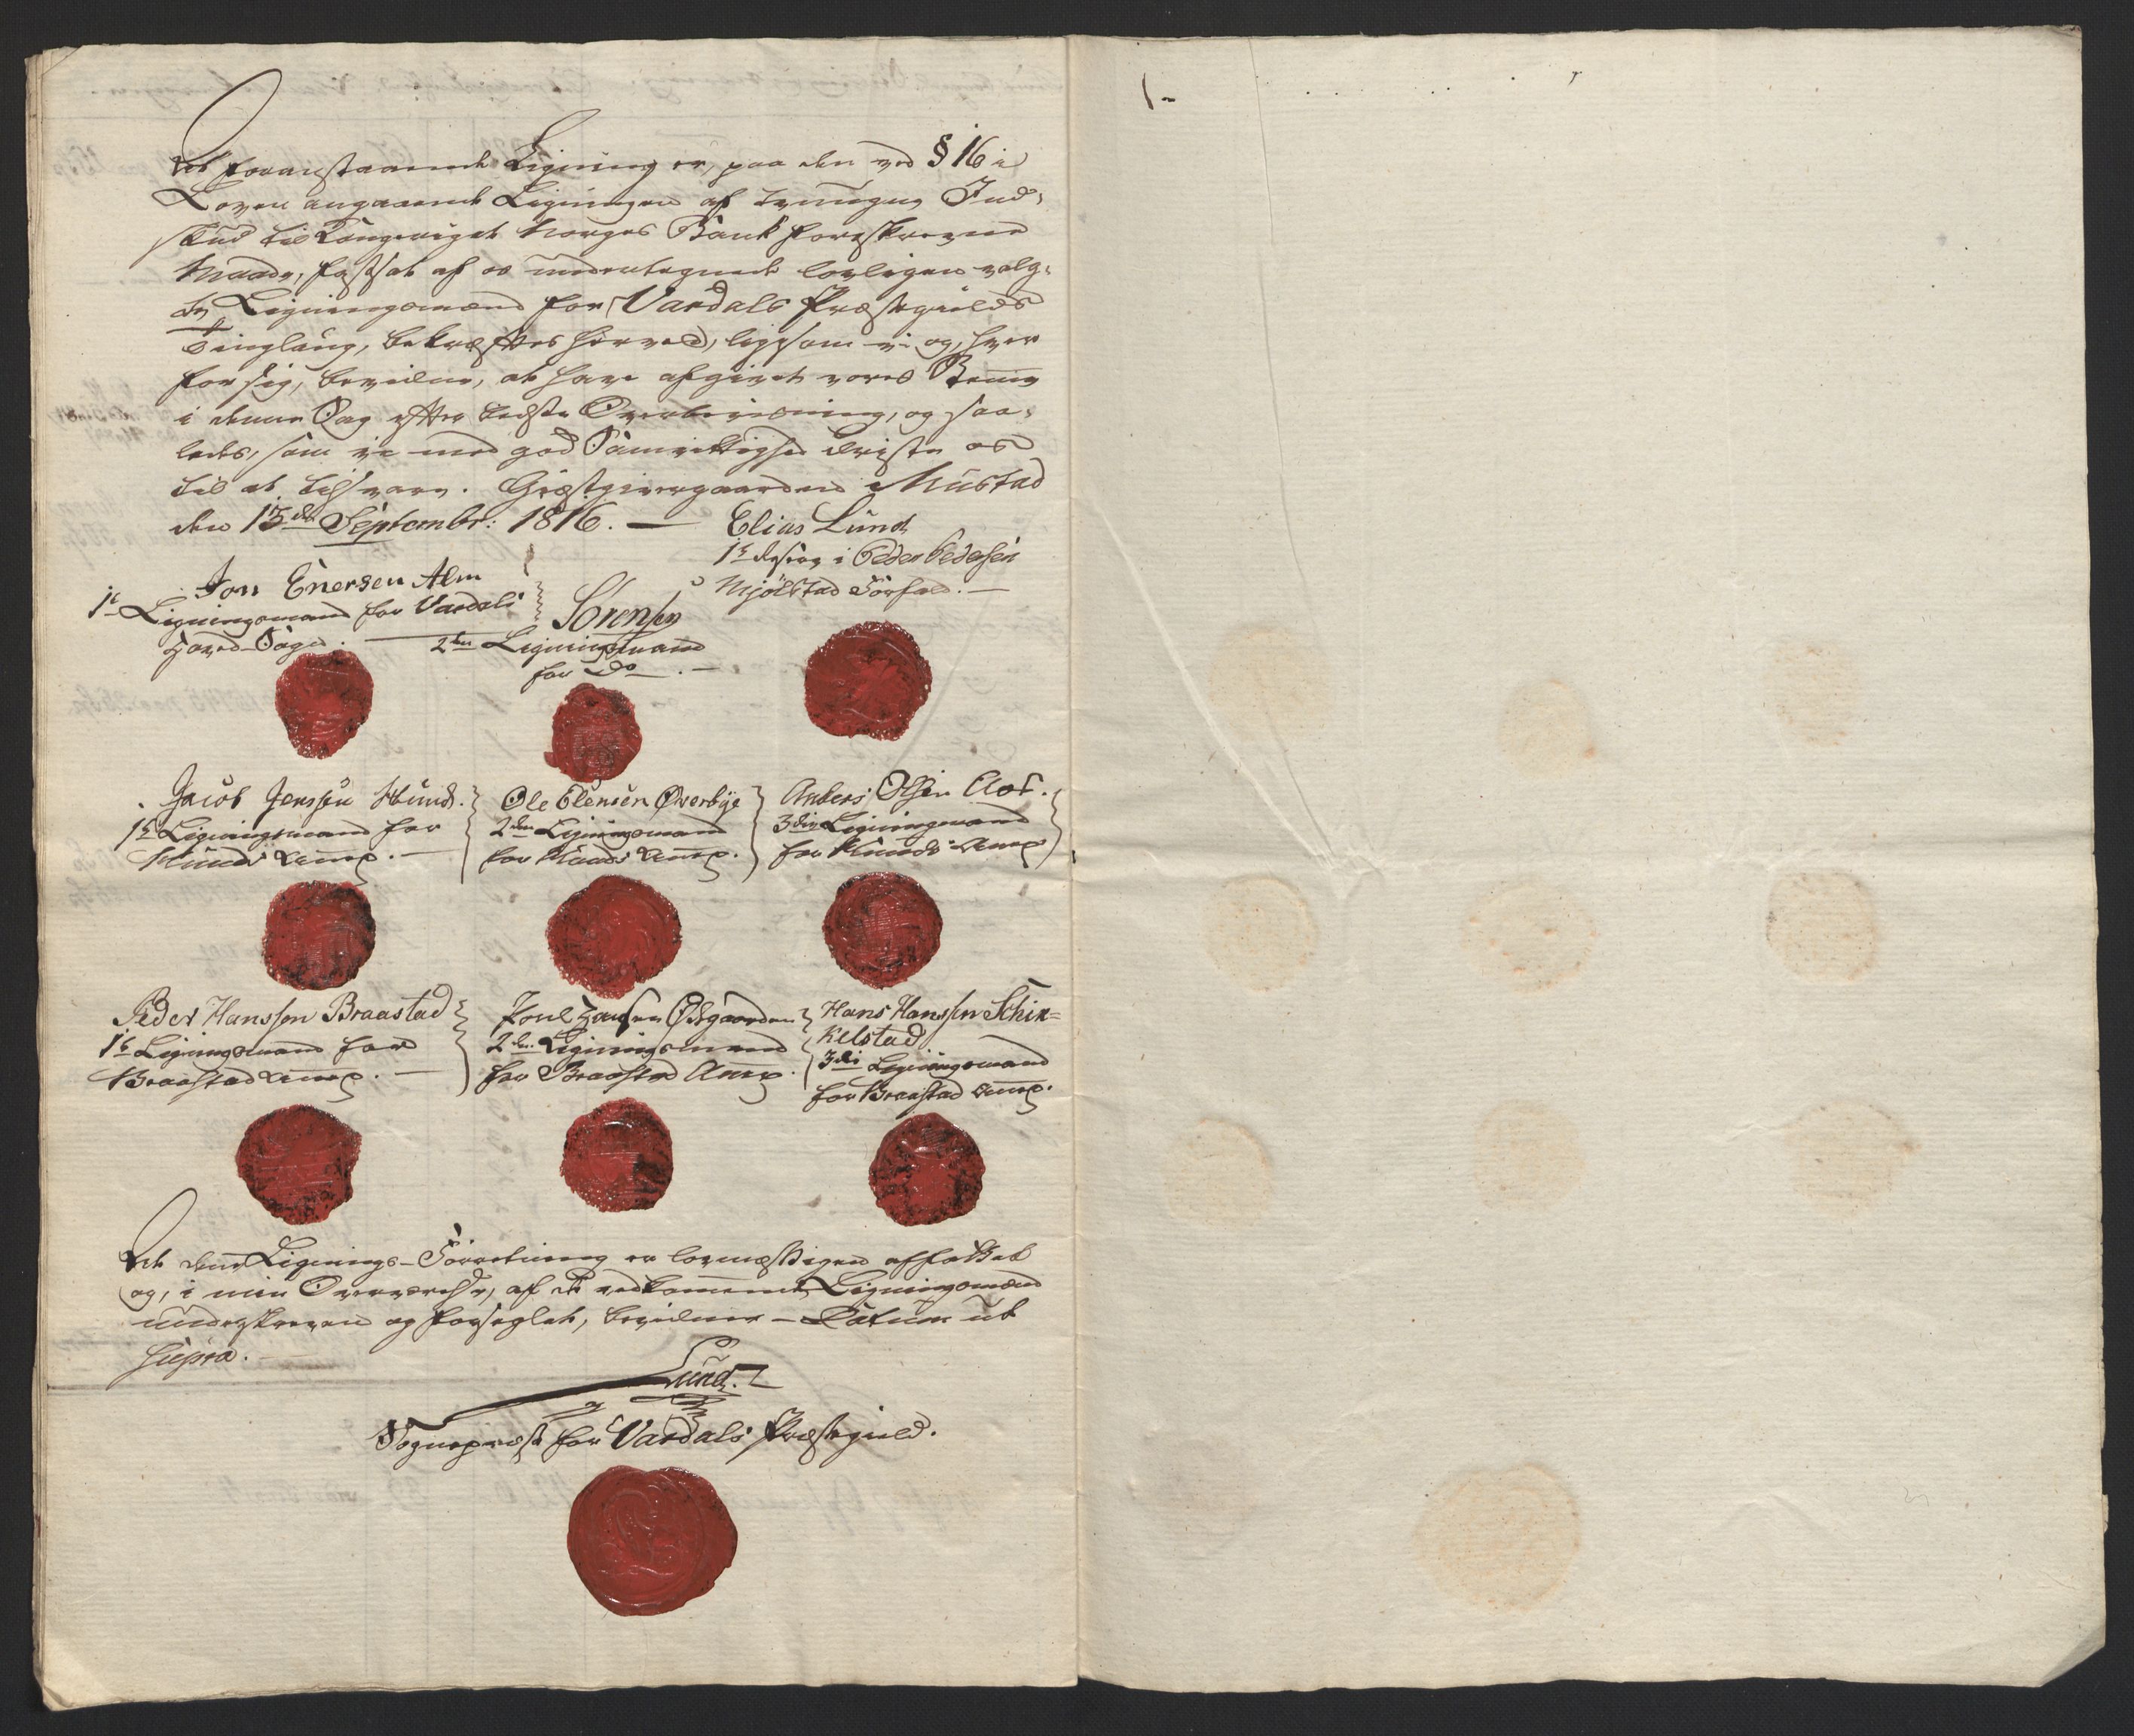 At foranstaaende Ligning er, paa den ved § 16 i
Loven angaaende Ligningen af tvungne Ind-
skud til Kongeriget Norges Bank foreskrevne
Maade, fastsat af os undertegnede lovligen valg-
te Ligningsmænd for Vardals Præstegields
Tinglaug, bekræftes herved, ligesom vi og, hver
for sig, bevidne, at have afgivet vores Stemme
i denne Sag efter bedste Overbeviisning, og saa-
ledes, som vi med god Samvittighed driste os
til at tilsvare. Giæstgivergaarden Mustad
den 13de Septembr: 1816. —
Elias Lund
1ste i Peder Pedersen
Mjölstad Forfald. —
Jon Enersen Alm
1ste Ligningsmand for Vardals
Hoved-Sogn. —
Sörensen
2den Ligningsmand
for Do. —
Jacob Jenssen Hund.
1ste Ligningsmand for
Hunds Annex. —
Ole Elensen Øverbye
2den Ligningsmand
for Hunds Annex.
Anders Olsen Aos.
3die Ligningsmand
for Hunds Annex
Peder Hanssen Braastad
1ste Ligningsmand for
Braastad Annex. —
Poul Hansen Ødegaarden
2den Ligningsmand
for Braastad Annex.
Hans Hanssen Schin=
kelstad
3die Ligningsmand
for Braastad Annex.
At denne Lignings-Forretning er lovmæssigen affattet
og, i min Overværelse, af de vedkommende Ligningsmænd
underskreven og forseglet, bevidner — Datum ut
supra. —
Lund.
Sognepræst for Vardals Præstegield.